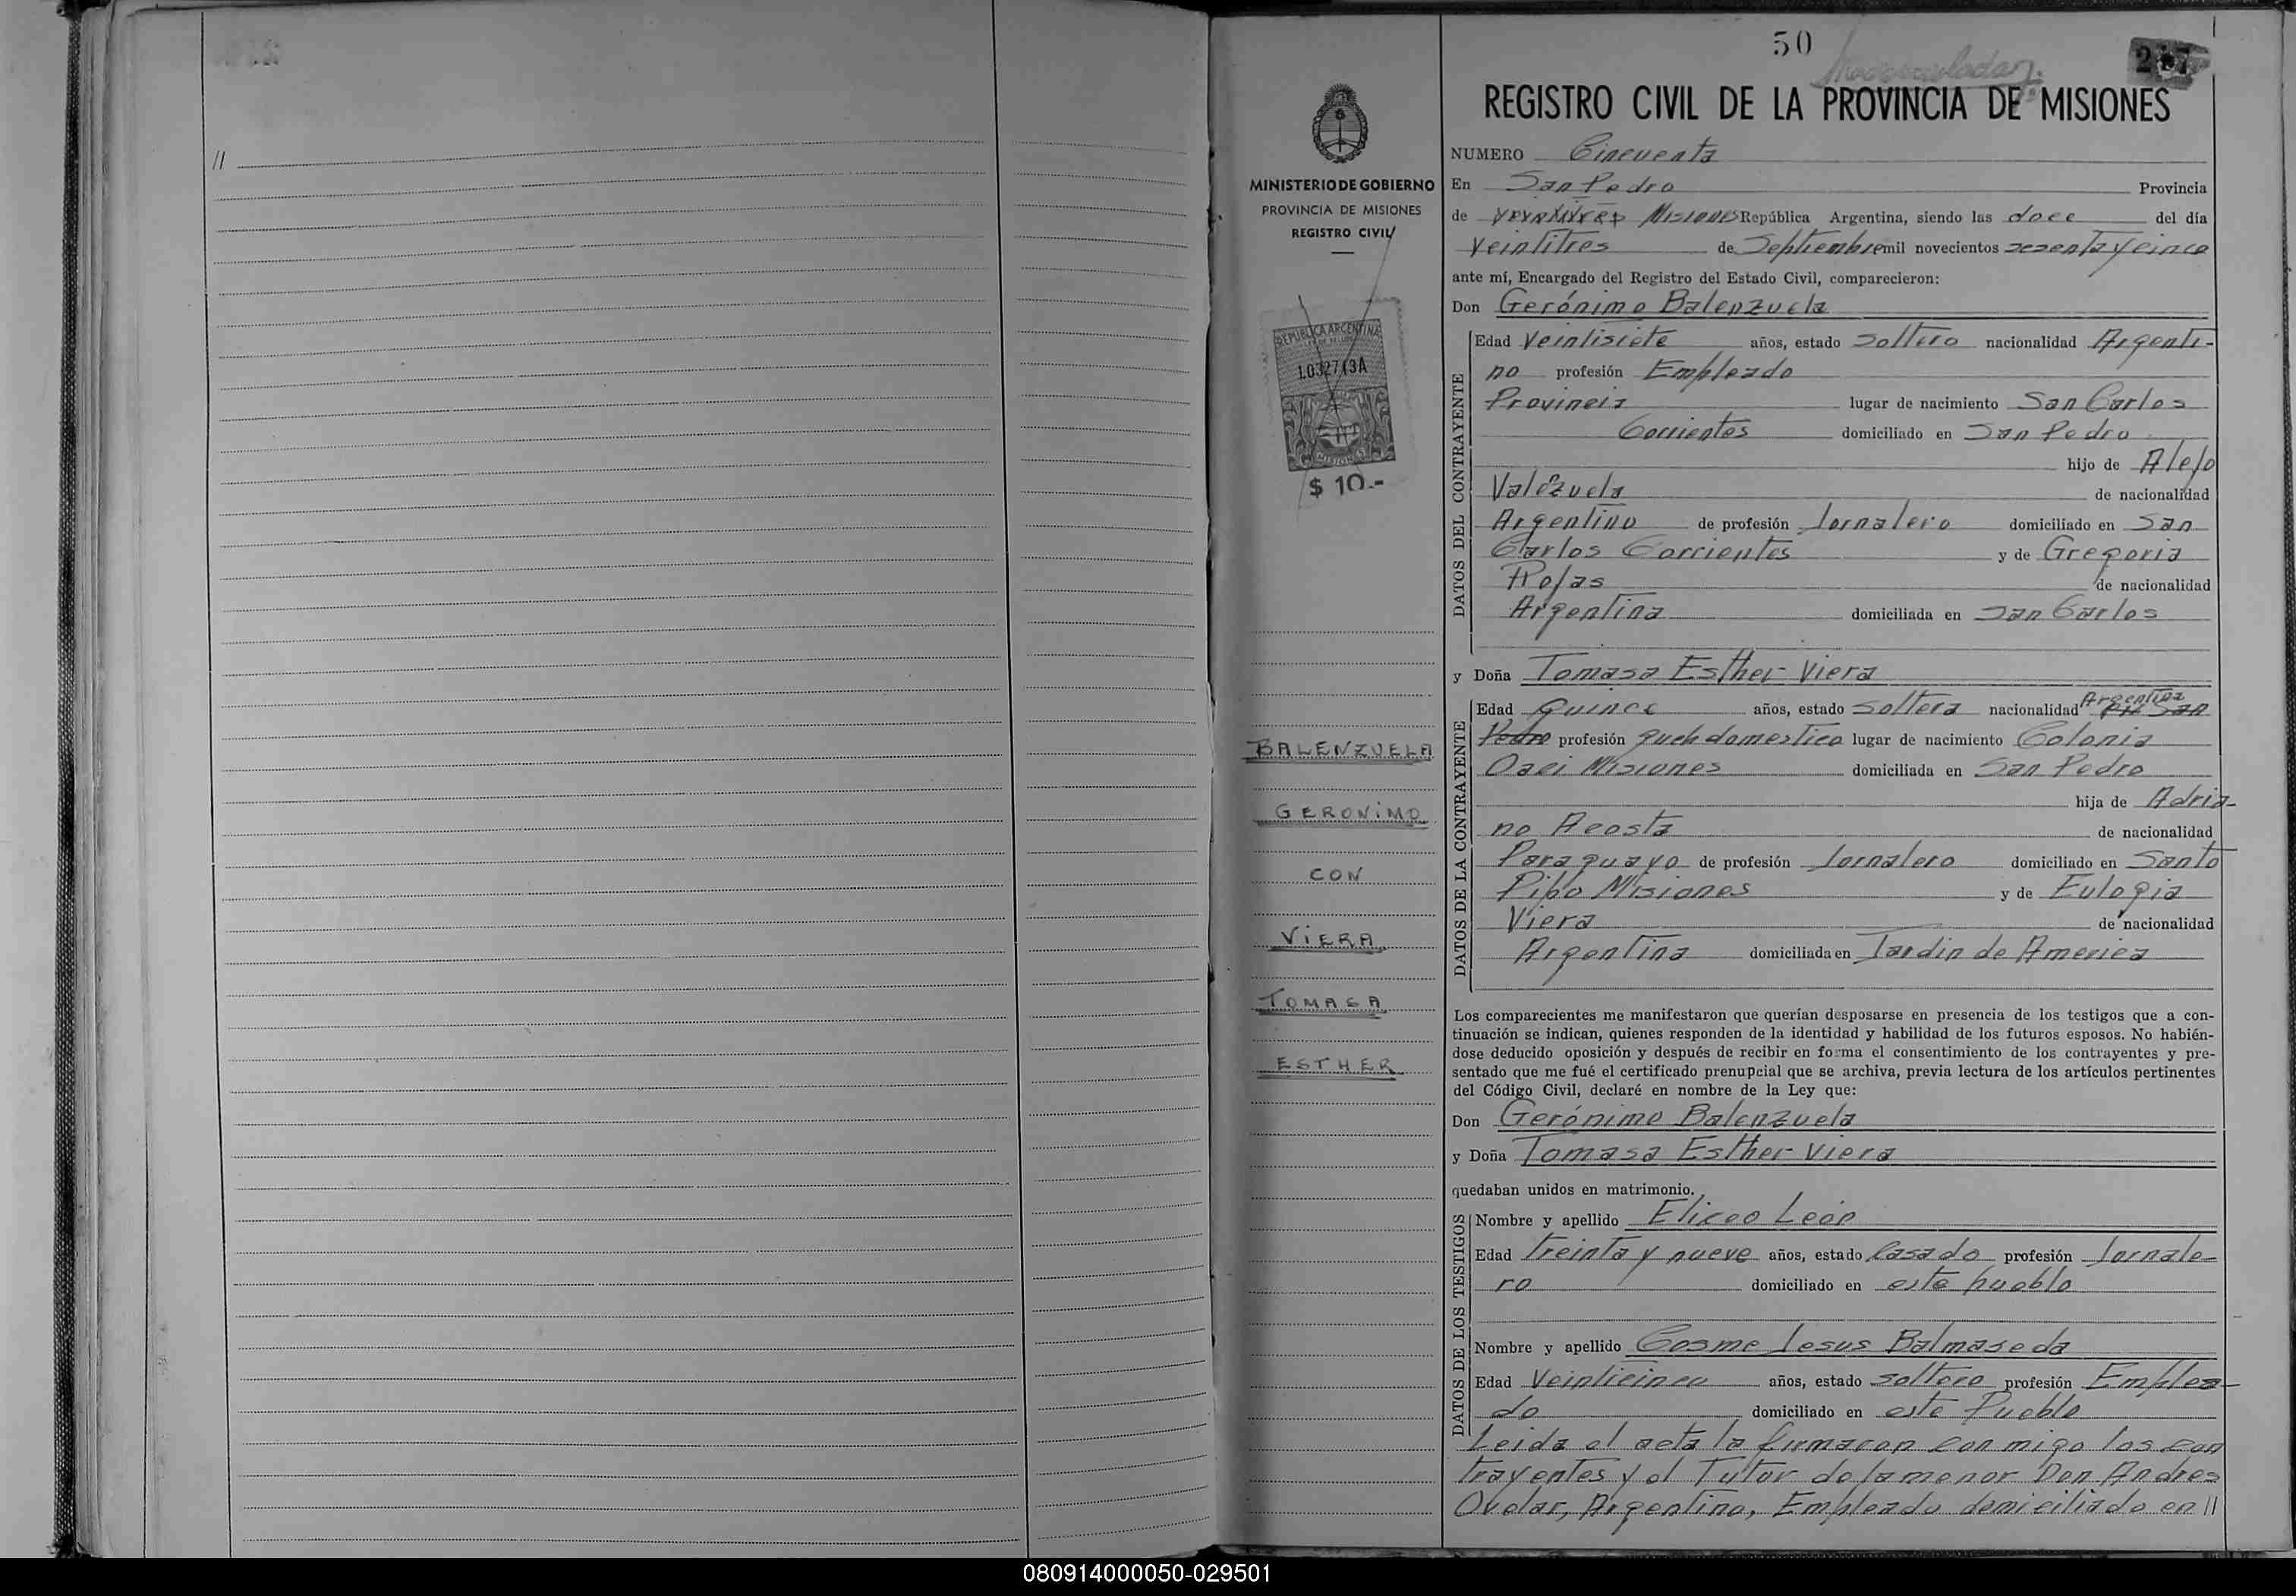 //
50
217
REGISTRO CIVIL DE LA PROVINCIA DE MISIONES
MINISTERIO DE GOBIERNO
PROVINCIA DE MISIONES
REGISTRO CIVIL
REPUBLICA ARGENTINA
MISIONES
$ 10.-
BALENZUELA
GERONIMO
CON
VIERA
TOMASA
ESTHER
NUMERO Cincuenta
En San Pedro Provincia
de Misiones República Argentina, siendo las doce del día
veintitres de Septiembre mil novecientos sesenta y cinco
ante mí, Encargado del Registro del Estado Civil, comparecieron:
Don Gerónimo Balenzuela
DATOS DEL CONTRAYENTE
Edad Veintisiete años, estado soltero nacionalidad Argenti-
no profesión Empleado
Provincia lugar de nacimiento San Carlos
Corrientes domiciliado en San Pedro
hijo de Alejo
Valezuela de nacionalidad
Argentino de profesión Jornalero domiciliado en San
Carlos Corrientes y de Gregoria
Rojas de nacionalidad
Argentina domiciliada en San Carlos
y Doña Tomasa Esther Viera
DATOS DE LA CONTRAYENTE
Edad Quince años, estado soltera nacionalidad Argentina en San
Pedro profesión queh domestico lugar de nacimiento Colonia
Oasi Misiones domiciliada en San Pedro
hija de Adria-
no Acosta de nacionalidad
Paraguayo de profesión Jornalero domiciliado en Santo
Pipo Misiones y de Eulogia
Viera de nacionalidad
Argentina domiciliada en Jardin de America
Los comparecientes me manifestaron que querían desposarse en presencia de los testigos que a con-
tinuación se indican, quienes responden de la identidad y habilidad de los futuros esposos. No habién-
dose deducido oposición y después de recibir en forma el consentimiento de los contrayentes y pre-
sentado que me fué el certificado prenupcial que se archiva, previa lectura de los artículos pertinentes
del Código Civil, declaré en nombre de la Ley que:
Don Gerónimo Balenzuela
y Doña Tomasa Esther Viera
quedaban unidos en matrimonio.
DATOS DE LOS TESTIGOS
Nombre y apellido Eliceo León
Edad treinta y nueve años, estado Casado profesión Jornale-
ro domiciliado en este pueblo
Nombre y apellido Cosme Jesus Balmaseda
Edad Veinticinco años, estado soltero profesión Emplea-
do domiciliado en este Pueblo
Leida el acta la firmaron con migo los con
trayentes y el Tutor de la menor Don Andres
Ovelar, Argentino, Empleado domiciliado en //
080914000050-029501